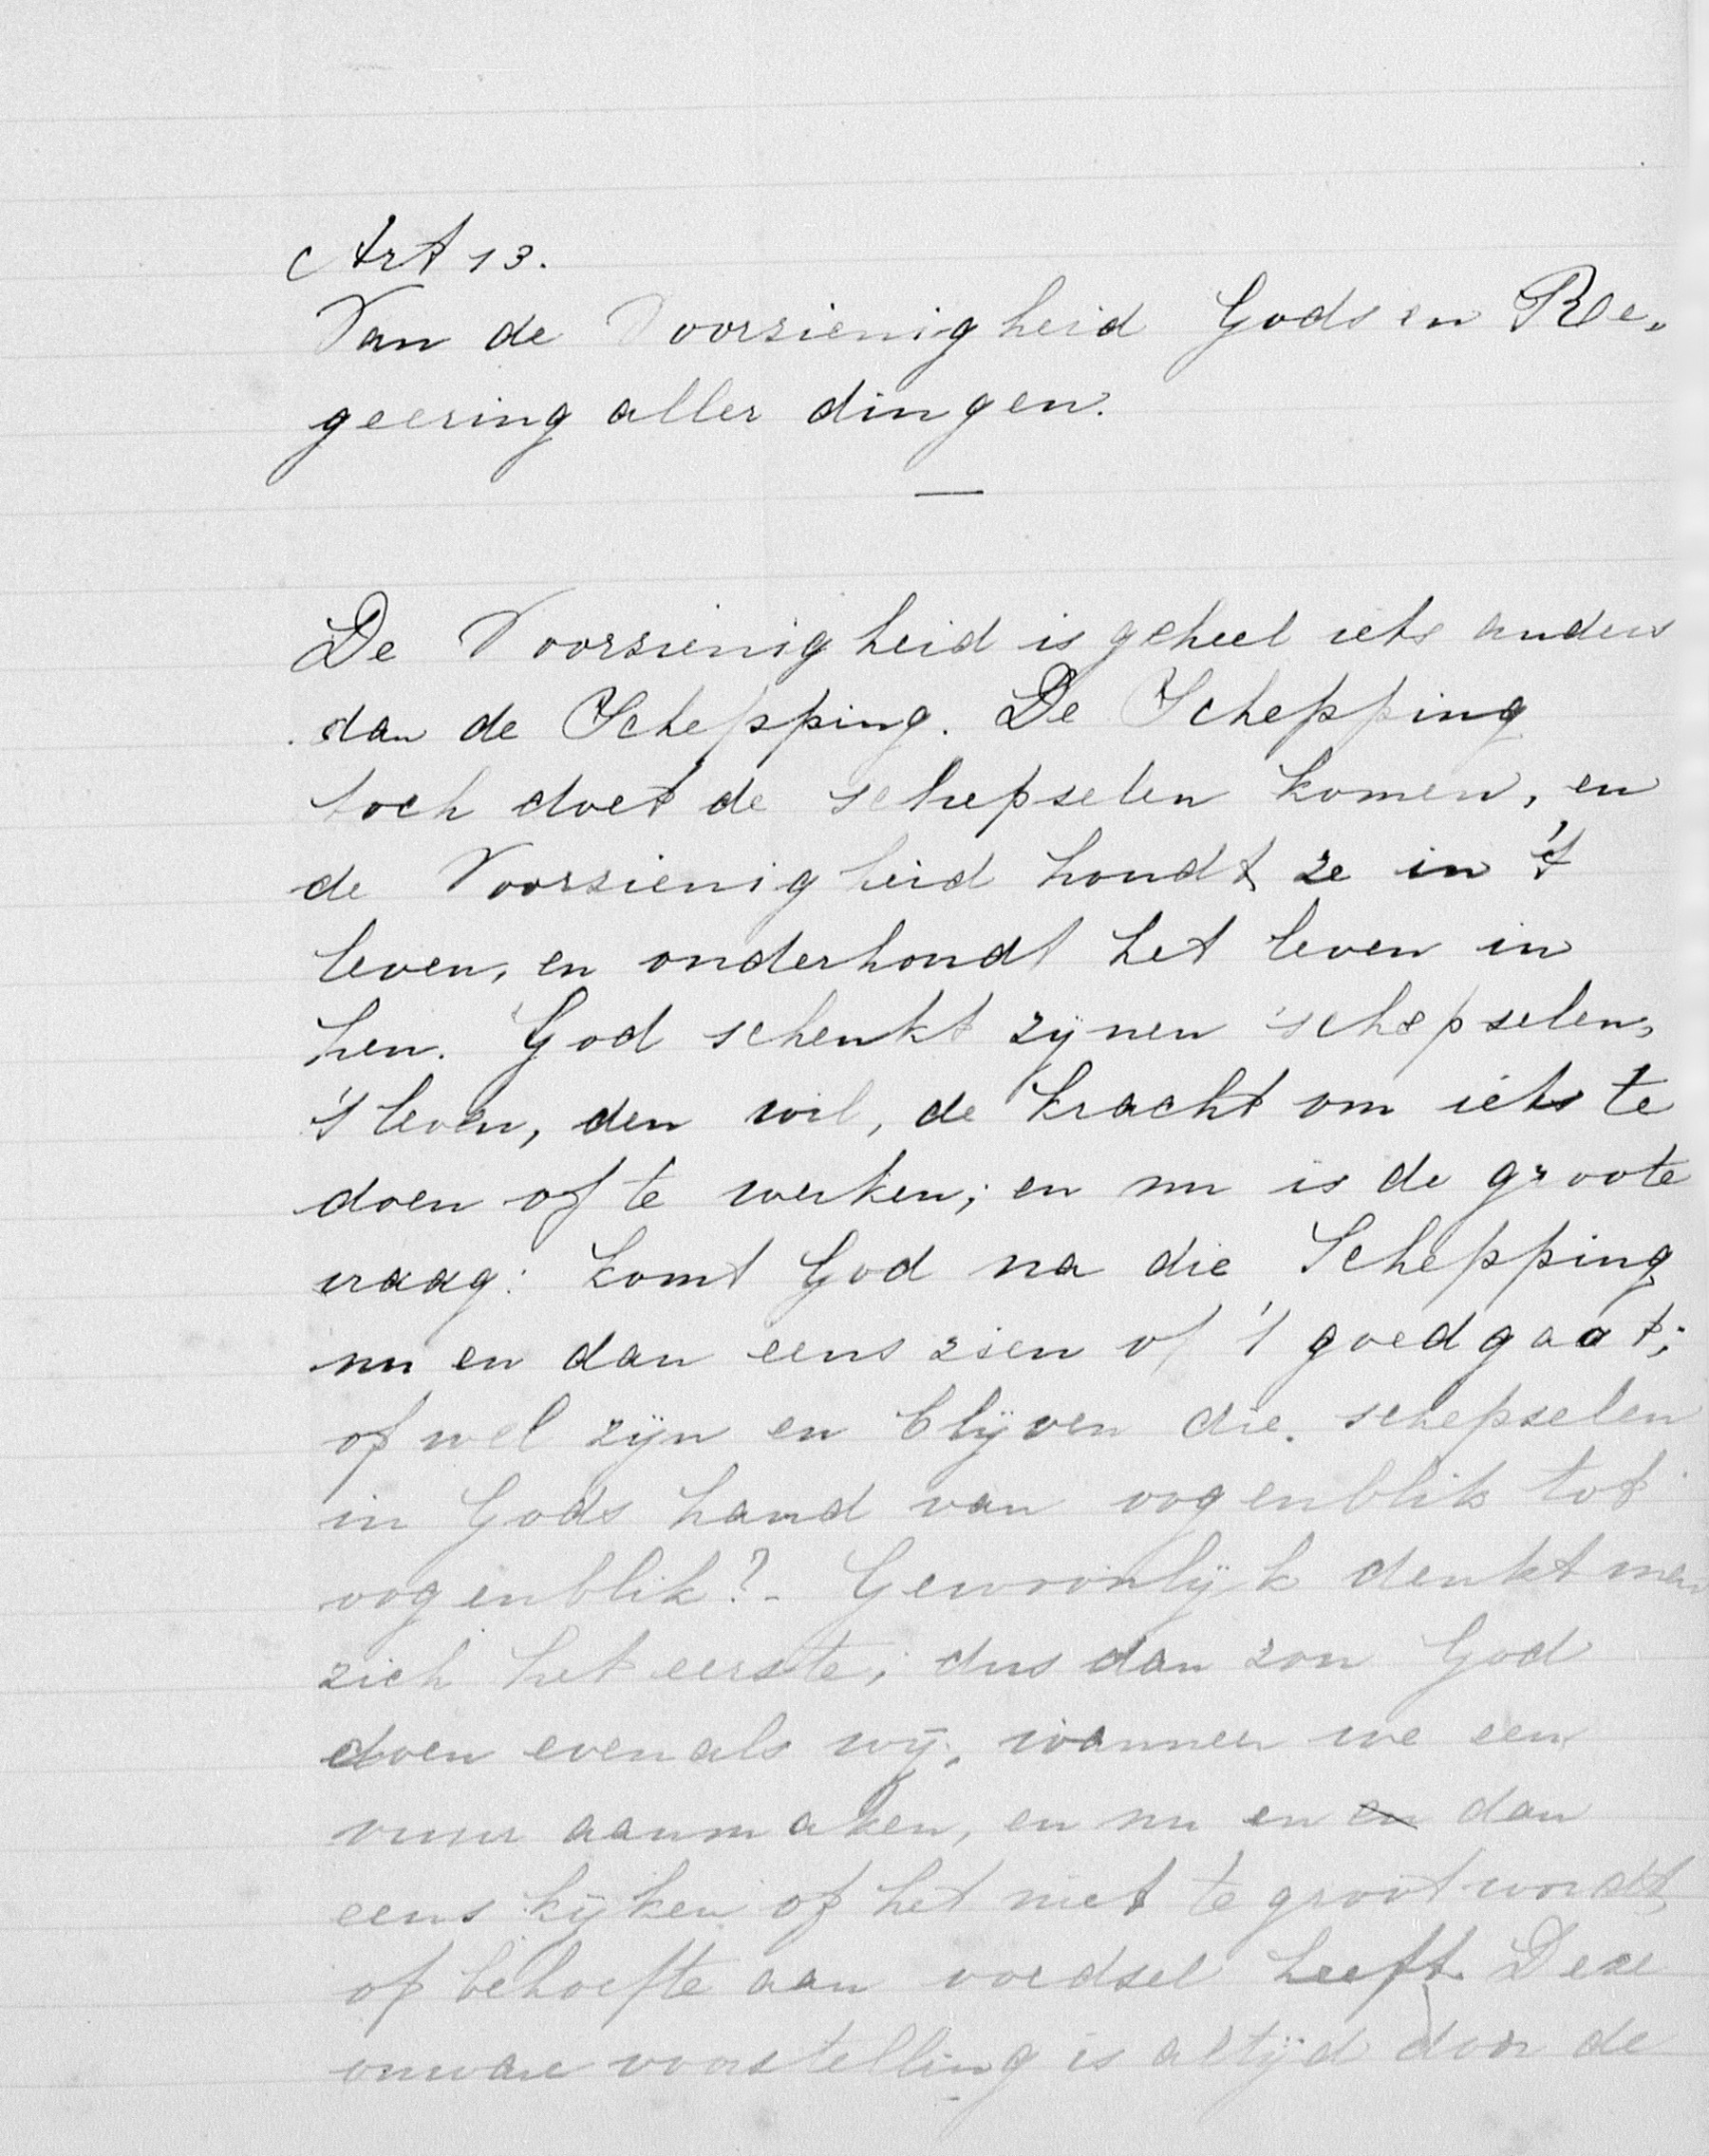 Art 13.
Van de Voorzienigheid Gods en Re„
geering aller dingen.
—
De Voorzienigheid is geheel iets anders
dan de Schepping. De Schepping
toch doet de schepselen komen, en
de Voorzienigheid houdt ze in 't
leven, en onderhoudt het leven in
hen. God schenkt zijnen schepselen,
't leven, den wil, de kracht om iets te
doen of te werken; en nu is de groote
vraag: komt God na die Schepping
nu en dan eens zien of 't goed gaat;
of wel zijn en blijven die schepselen
in Gods hand van oogenblik tot
oogenblik? - Gewoonlijk denkt men
zich het eerste, dus dan zou God
doen evenals wij, wanneer we een
vuur aanmaken, en nu en en dan
eens kijken of het niet te groot wordt,
of behoefte aan voedsel heeft. Deze
onware voorstelling is altijd door de